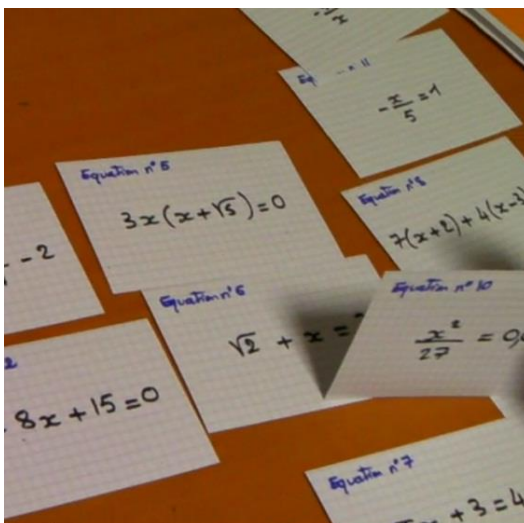 - x/5 = 1
Equation n°5
3x(x+√5)=0
Equation n°8
7(x+2)+4(x-3
- 2
Equation n°6
√2 + x =
Equation n°10
x²/27 = 0,
2
8x+15=0
Equation n°7
+3=4